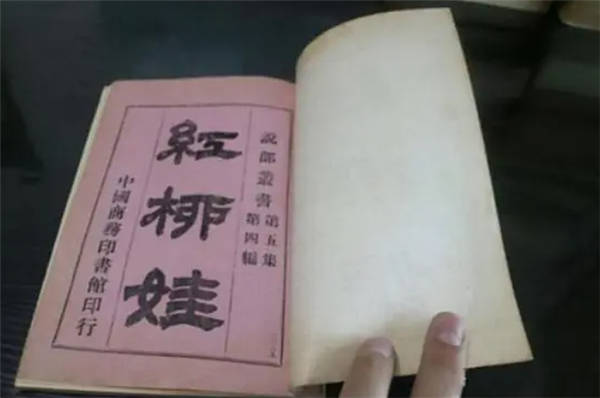 說部叢書
第五集
第四編
紅柳娃
中國商務印書館印行